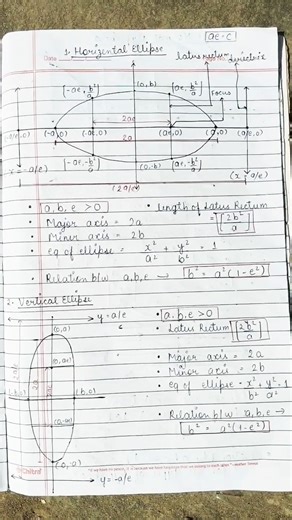 ae = c
Date
1. Horizontal Ellipse
Latus rectum
directrix
[-ae, b²/a]
(0, b)
[ae, b²/a]
Focus
2ae
(-a/e, 0)
(-a, 0)
(-ae, 0)
(ae, 0)
(a, 0)
(a/e, 0)
2a
[-ae, -b²/a]
(0, -b)
[ae, -b²/a]
x = -a/e
(x = a/e)
(2a/e)
• a, b, e > 0
• Length of Latus Rectum
= [2b²/a]
• Major axis = 2a
• Minor axis = 2b
• eq of ellipse = x²/a² + y²/b² = 1
• Relation b/w a, b, e → b² = a²(1-e²)
2- Vertical Ellipse
y = a/e
• a, b, e > 0
(0, a)
• Latus Rectum [2b²/a]
(0, ae)
• Major axis = 2a
2a
2ae
• Minor axis = 2b
(b, 0)
• eq of ellipse = x²/b² + y²/a² = 1
• Relation b/w a, b, e →
b² = a²(1-e²)
(0, -a)
y = -a/e